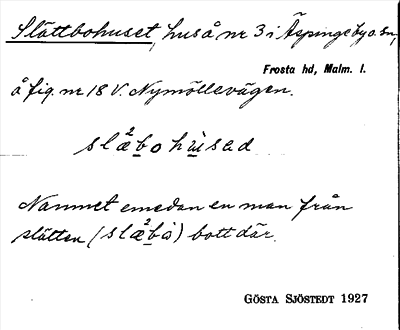 Slättbohuset, hus å nr 3 i Äspinge by o. sn,
Frosta hd, Malm. l.
å fig. nr 18 V. Nymöllevägen.
slæ²bohùsad
Namnet emedan en man från
slätten (slæ²bå) bott där.
GÖSTA SJÖSTEDT 1927